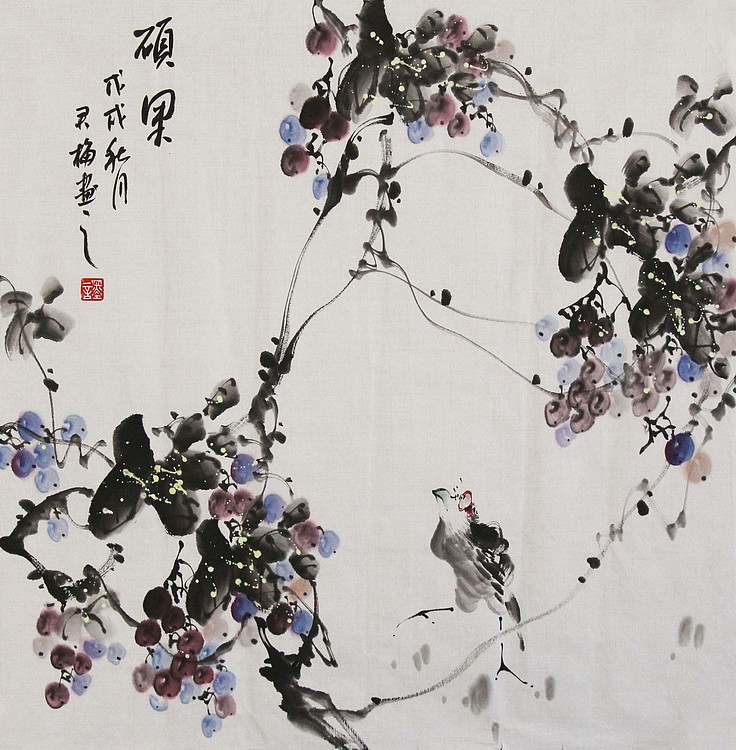 硕果
戊戌秋月
君梅画之